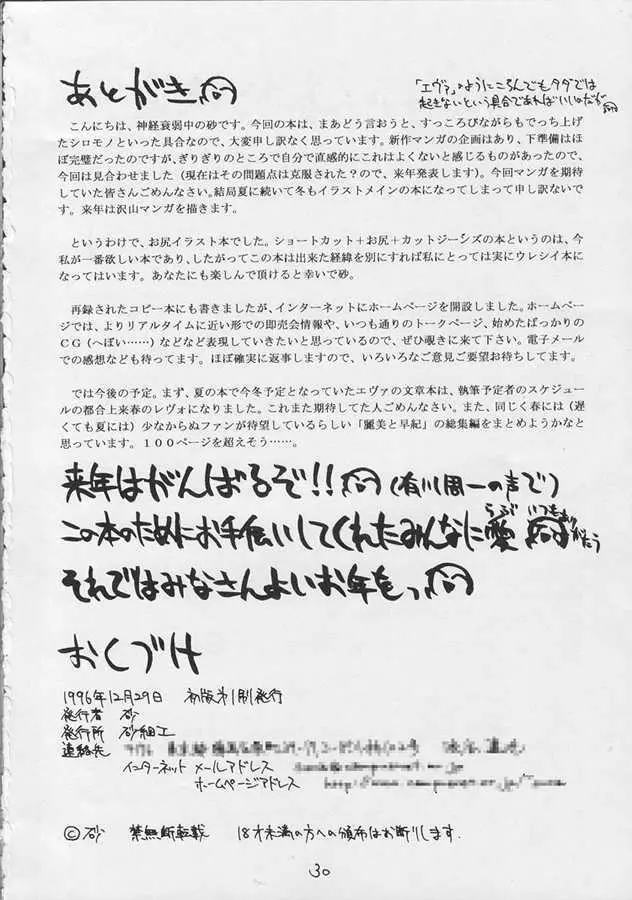 あとがき
「エヴァ」のようにころんでもタダでは
起きないという具合であればいいのだが
こんにちは、神経衰弱中の砂です。今回の本は、まあどう言おうと、すっころびながらもでっち上げ
たシロモノといった具合なので、大変申し訳なく思っています。新作マンガの企画はあり、下準備はほ
ぼ完璧だったのですが、ぎりぎりのところで自分で直感的にこれはよくないと感じるものがあったので、
今回は見合わせました（現在はその問題点は克服された？ので、来年発表します）。今回マンガを期待
していた皆さんごめんなさい。結局夏に続いて冬もイラストメインの本になってしまって申し訳ないで
す。来年は沢山マンガを描きます。
というわけで、お尻イラスト本でした。ショートカット＋お尻＋カットジーンズの本というのは、今
私が一番欲しい本であり、したがってこの本は出来た経緯を別にすれば私にとっては実にウレシイ本に
なってはいます。あなたにも楽しんで頂けると幸いで砂。
再録されたコピー本にも書きましたが、インターネットにホームページを開設しました。ホームペー
ジでは、よりリアルタイムに近い形での即売会情報や、いつも通りのトークページ、始めたばっかりの
ＣＧ（へぼい……）などなど表現していきたいと思っているので、ぜひ覗きに来て下さい。電子メール
での感想なども待ってます。ほぼ確実に返事しますので、いろいろなご意見ご要望お待ちしてます。
では今後の予定。まず、夏の本で今冬予定となっていたエヴァの文章本は、執筆予定者のスケジュー
ルの都合上来春のレヴォになりました。これまた期待してた人ごめんなさい。また、同じく春には（遅
くても夏には）少なからぬファンが待望しているらしい「麗美と早紀」の総集編をまとめようかなと
思っています。１００ページを超えそう……。
来年はがんばるぞ!! (有川周一の声で)
らぶ いつもあり
この本のためにお手伝いしてくれたみんなに愛 がとう
それではみなさんよいお年をっ
おくづけ
1996年12月29日 初版第1刷発行
発行者 砂
発行所 砂細工
連絡先
インターネット メールアドレス
ホームページアドレス
©砂 禁無断転載 18才未満の方への頒布はお断りします.
30